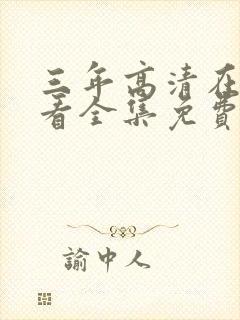 三年高清在
看全集免費
諭中人